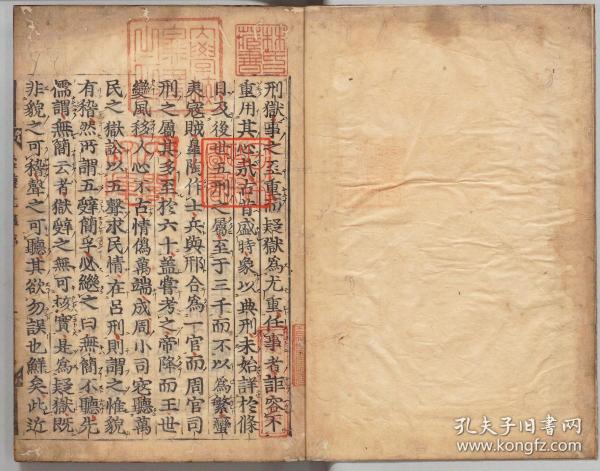 刑獄事之至重而疑獄為尤重任事者詎容不
重用其心哉古昔盛時象以典刑未始詳於條
目及後世五刑之屬至于三千而不以為繁蠻
夷寇賊皐陶作士兵與刑合為一官而周官司
刑之屬其多至於六十蓋嘗考之帝降而王世
變風移人心不古情偽萬端成周小司寇聽萬
民之獄訟以五聲求民情在呂刑則謂之惟貌
有稽然所謂五辭簡孚必繼之曰無簡不聽先
儒謂無簡云者獄辭之無可核實是為疑獄既
非貌之可稽聲之可聽其欲勿誤也鮮矣此近
孔夫子旧书网
www.kongfz.com